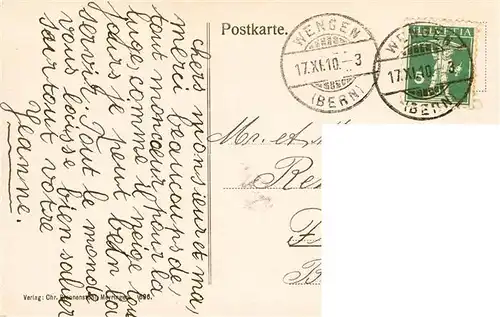 Postkarte.
WENGEN
17.XI.10.-3
(BERN)
WENGEN
17.XI.10.-3
(BERN)
HELVETIA
5
chers monsieur et ma,
merci beaucoup de
tout mon cœur pour la
luge, comme il neige tou
jours je peut bein la
servir. Tout le monde
vous laisse bien saluer
surtout votre
Jeanne.
Mr. et
Verlag: Chr. Meyringen. 1896.